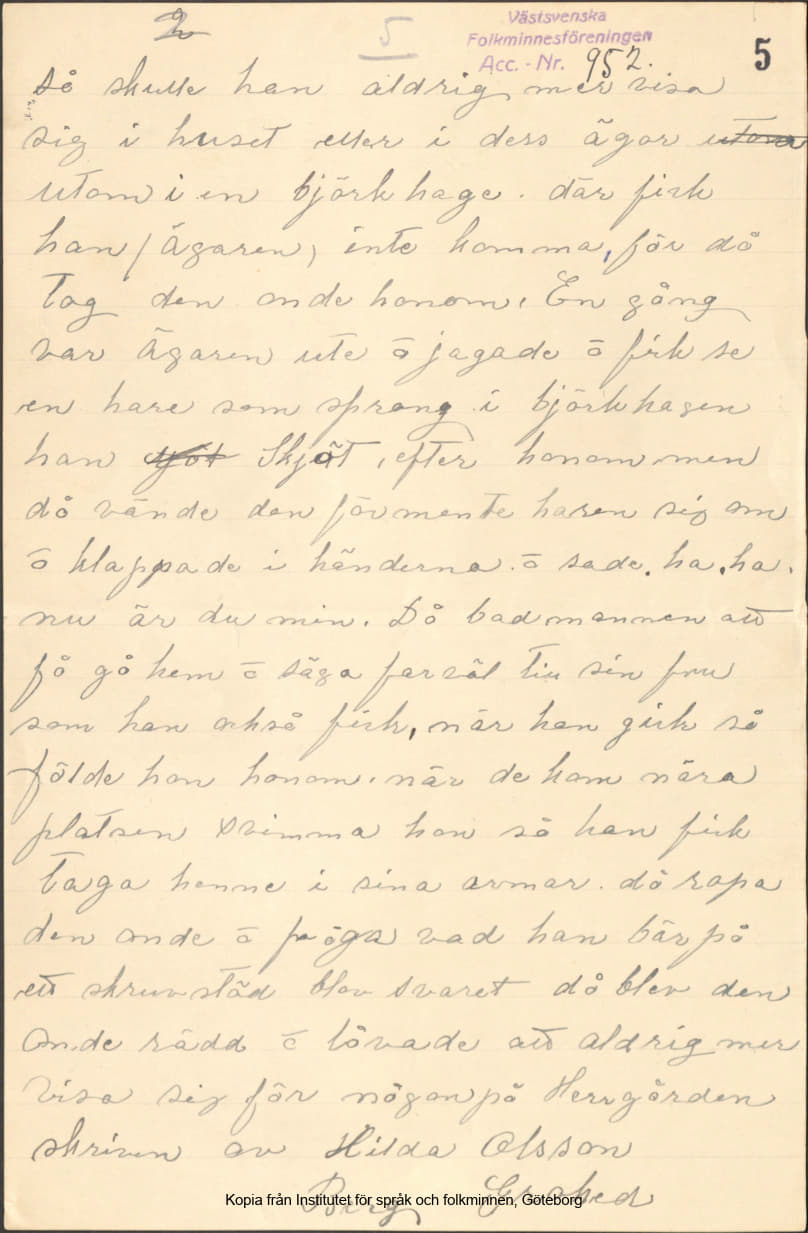 2 5 Västsvenska
Folkminnesföreningen
Acc. - Nr. 952. 5
så skulle han aldrig mer visa
sig i huset eller i dess ägor utom
utom i en björkhage. där fick
han (Ägaren) inte komma, för då
tog den onde honom. En gång
var Ägaren ute ō jagade ō fick se
en hare som sprang i björkhagen
han sjöt Skjöt efter honom men
då vände den förmente haren sig om
ō klappade i händerna. ō sade. ha, ha.
nu är du min. Då bad mannen att
få gå hem ō säga farväl till sin fru
som han också fick, när han gick så
följde hon honom. när de kom nära
platsen svimma hon så han fick
taga henne i sina armar. då ropa
den onde ō fråga vad han bär på
ett skruvstäd blev svaret då blev den
onde rädd ō lovade att aldrig mer
visa sig för någon på Herrgården
skriven av Hilda Olsson
Berg Grohed
Kopia från Institutet för språk och folkminnen, Göteborg